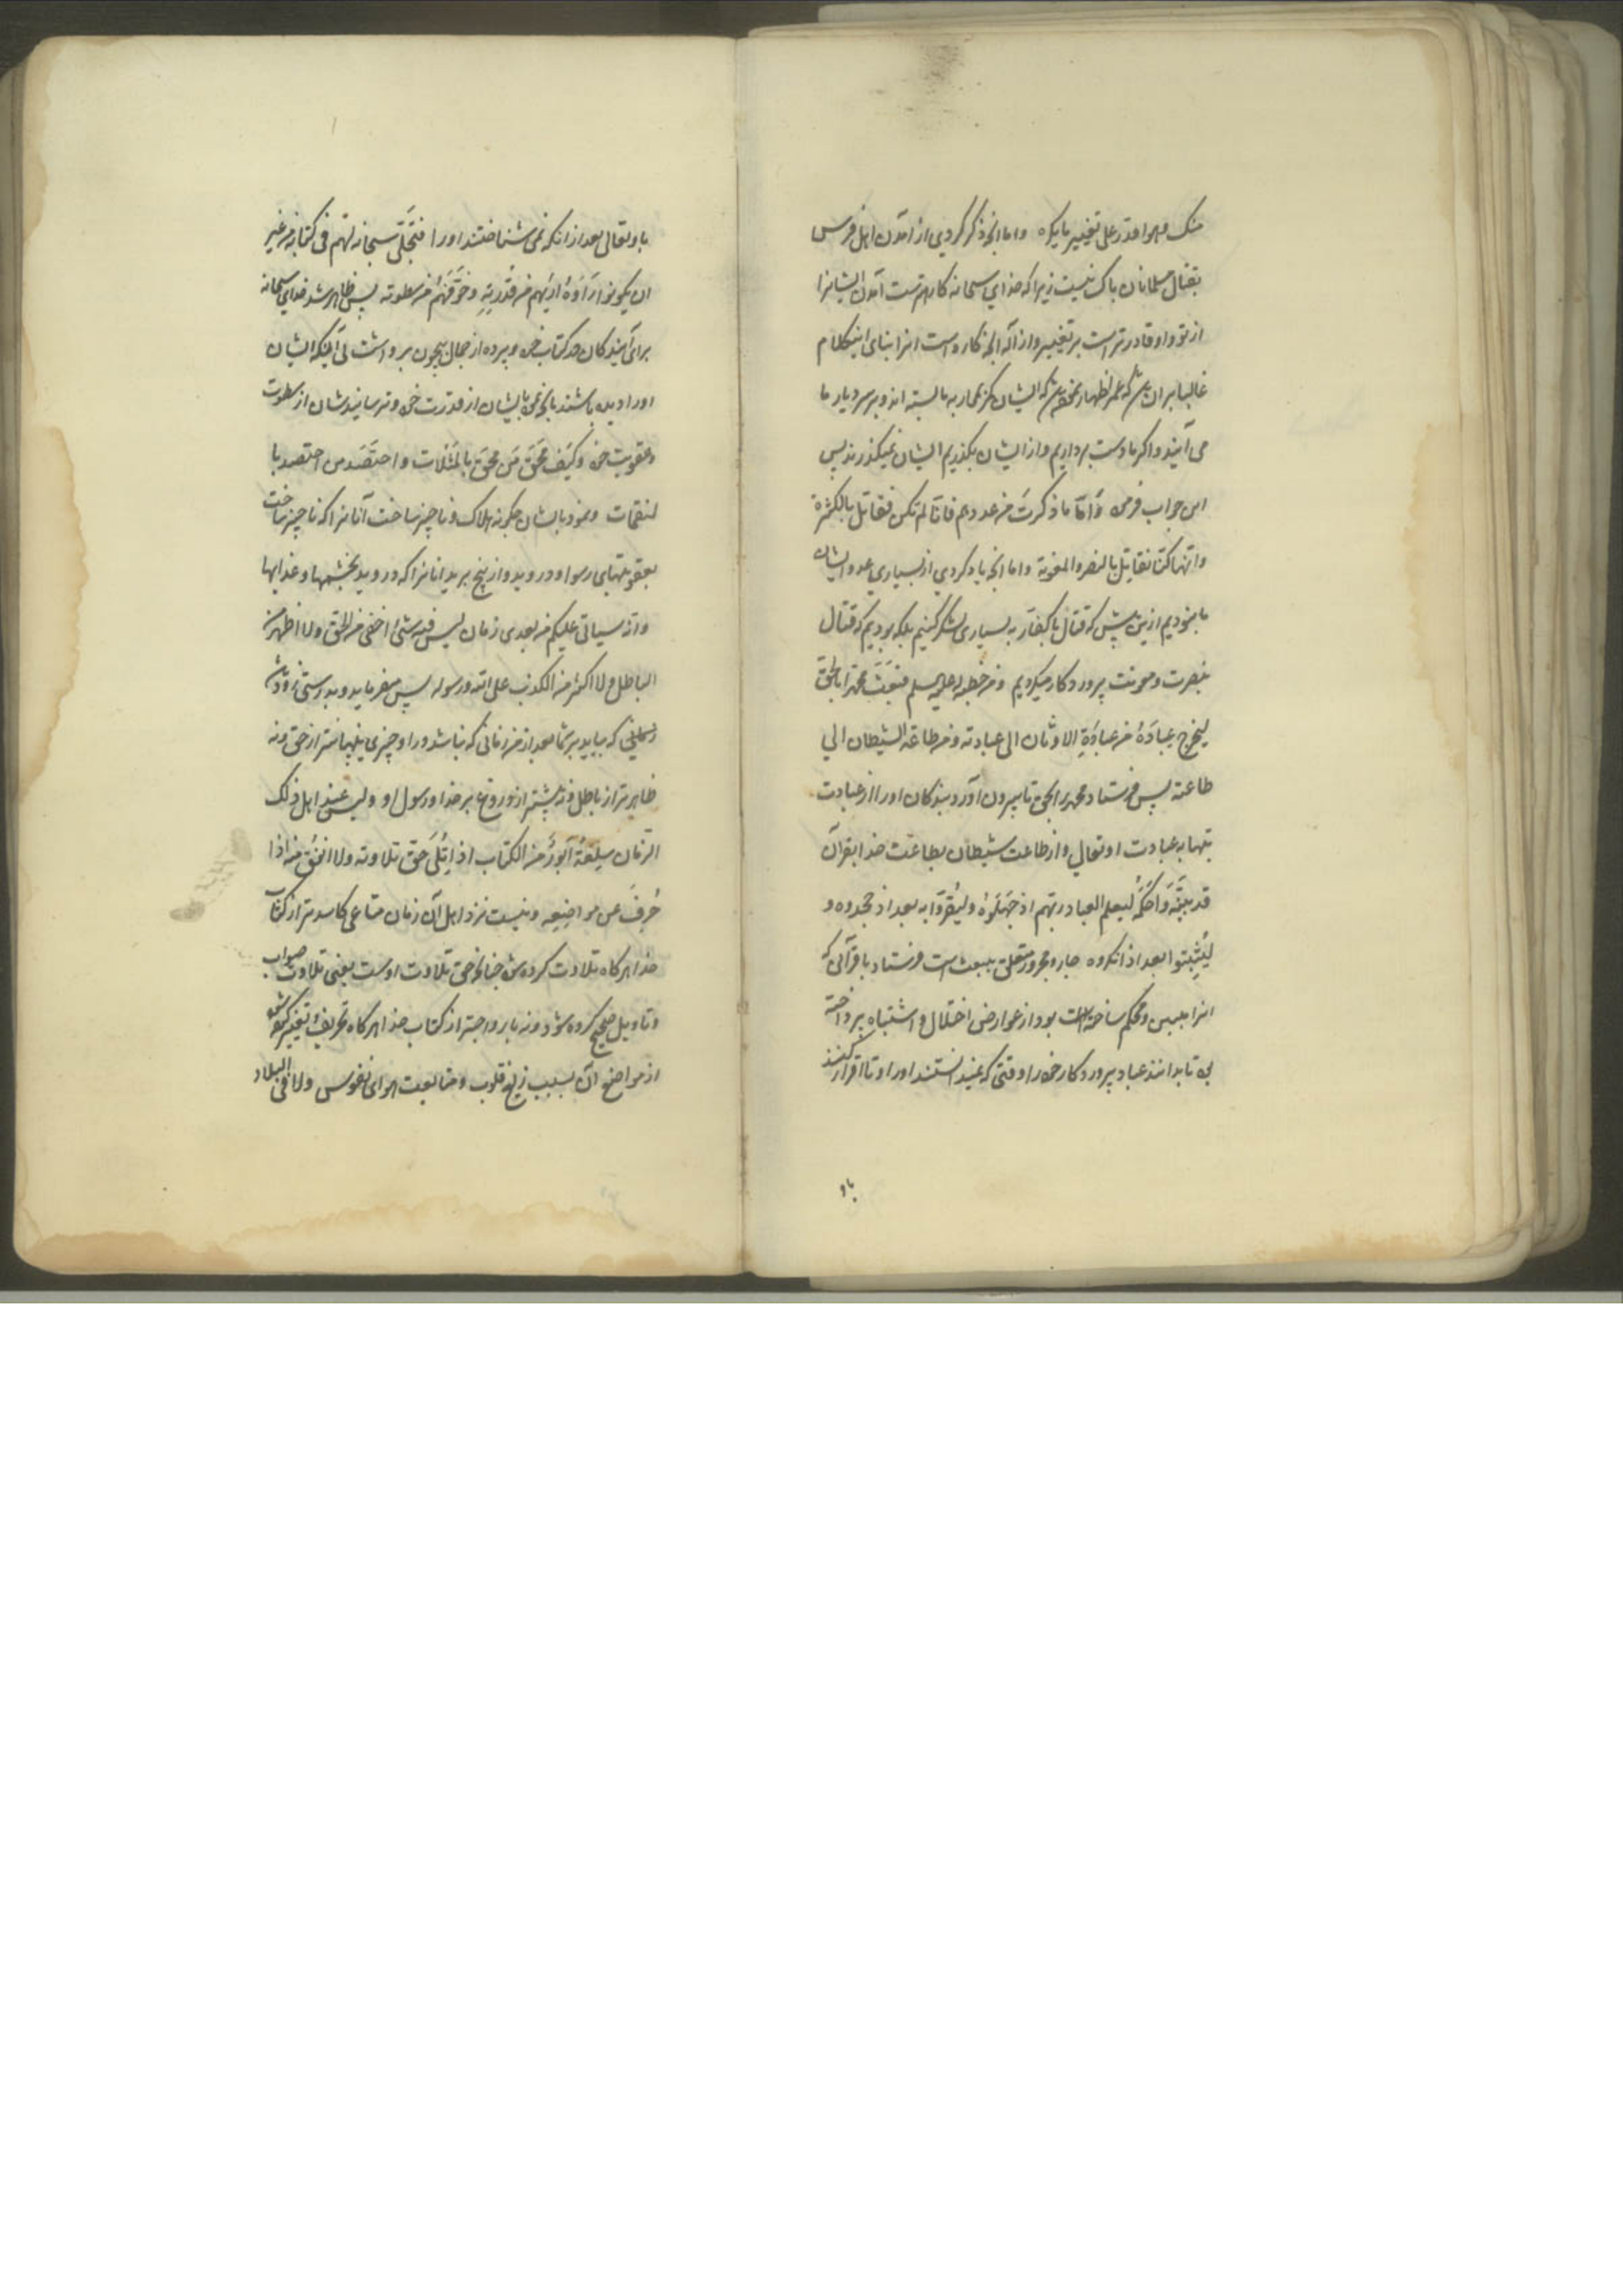 منک وهو اقدر علی تغییر ما یکره واما انچه ذکر کردی از آمدن اهل فرس
بقتال مسلمانان باک نیست زیرا که خدای سبحانه کاره ترست آمدن ایشانرا
از تو و او قادر تر است بر تغییر و ازاله انچه کاره است انرا بنای اینکلام
غالبا بران که عمر اظهار که ایشان کمر بمحاربه ما بسته اند و بر سر دیار ما
می آیند و اگر ما دست برداریم و از ایشان بگذریم ایشان نمیگذرند پس
این جواب فرمود وَاَمّا ما ذکرتَ من عددهم فانّا لم نکن نقاتل بالکثرة
وانما کنّا نقاتل بالنصر والمعونة واما انچه یاد کردی از بسیاری عدد ایشان
ما نبودیم ازین پیش که قتال با کفار به بسیاری لشکر کنیم بلکه بودیم که قتال
بنصرت و معونت پروردکار میکردیم ومن خطبه له علیه السلم فبَعَثَ محمدا بالحقّ
لیُخرج عِبادَهُ من عِبادَةِ الاوثان الی عبادته ومن طاعة الشیطان الی
طاعته پس فرستاد محمد را بحق تا بیرون آورد بندکان او را از عبادت
بتها به عبادت او تعالی و از طاعت شیطان بطاعت خدا بقرآن
قد بیّنَهُ وَاَحکَمَهُ لیعلم العباد ربّهم اذ جَهِلُوهُ ولیُقرّوا به بعد اذ جحدوه و
لیُثبِتوا بعد اذ انکروه جار و مجرور متعلق ببعث است فرستاد با قرآنی که
انرا مبین و محکم ساخته است بود از عوارض اختلال و اشتباه پرداخته
تا بدانند عباد پروردکار خود را وقتی که نمیدانستند او را و تا اقرار کنند
باو
باو تعالی بعد از انکه نمی شناختند او را فتَجَلّی سبحانه لهم فی کتابه من غیر
ان یکونوا رَاَوهُ اراهم من قُدرتِهِ وخَوَّفَهُم من سطوته پس ظاهر شد خدای سبحانه
برای بندکان در کتاب خود و پرده از جمال بیچون برداشت بی آنکه ایشان
او را دیده باشند بانچه نمود بایشان از قدرت خود و ترسانیدشان از سطوت
و عقوبت خود وکَیفَ مَحَقَ مَن محقَ بالمَثُلات واحتَصَدَ من احتصد با
لنقمات و نمود بایشان چکونه هلاک و ناچیز ساخت آنانرا که ناچیز ساخت
بعقوبتهای رسوا و دروید و از بیخ برید انانرا که دروید بخشمها و عذابها
وانه سیاتی علیکم من بعدی زمان لیس فیه شئ اخفی من الحق ولا اظهر من
الباطل ولا اکثر من الکذب علی الله ورسوله پس میفرماید و بدرستی زود
که بیاید بر شما بعد از من زمانی که نباشد در او چیزی پنهانتر از حق و نه
ظاهرتر از باطل و نه بیشتر از دروغ بر خدا و رسول او ولیس عند اهل ذلک
الزمان سِلعَةٌ اَبوَرُ من الکتاب اذا تُلیَ حقّ تلاوته ولا انفَقَ منه اذا
حُرِفَ عن مواضِعِه و نیست نزد اهل آن زمان متاعی کاسدتر از کتاب
خدا هرکاه تلاوت کرده شود چنانچه حق تلاوت اوست یعنی تلاوت صواب
و تاویل صحیح کرده شود و نه با رواجتر از کتاب خدا هرکاه تحریف و تغییر کرده شود
از مواضع آن بسبب زیغ قلوب و متابعت هوای نفوس ولا فی البلاد